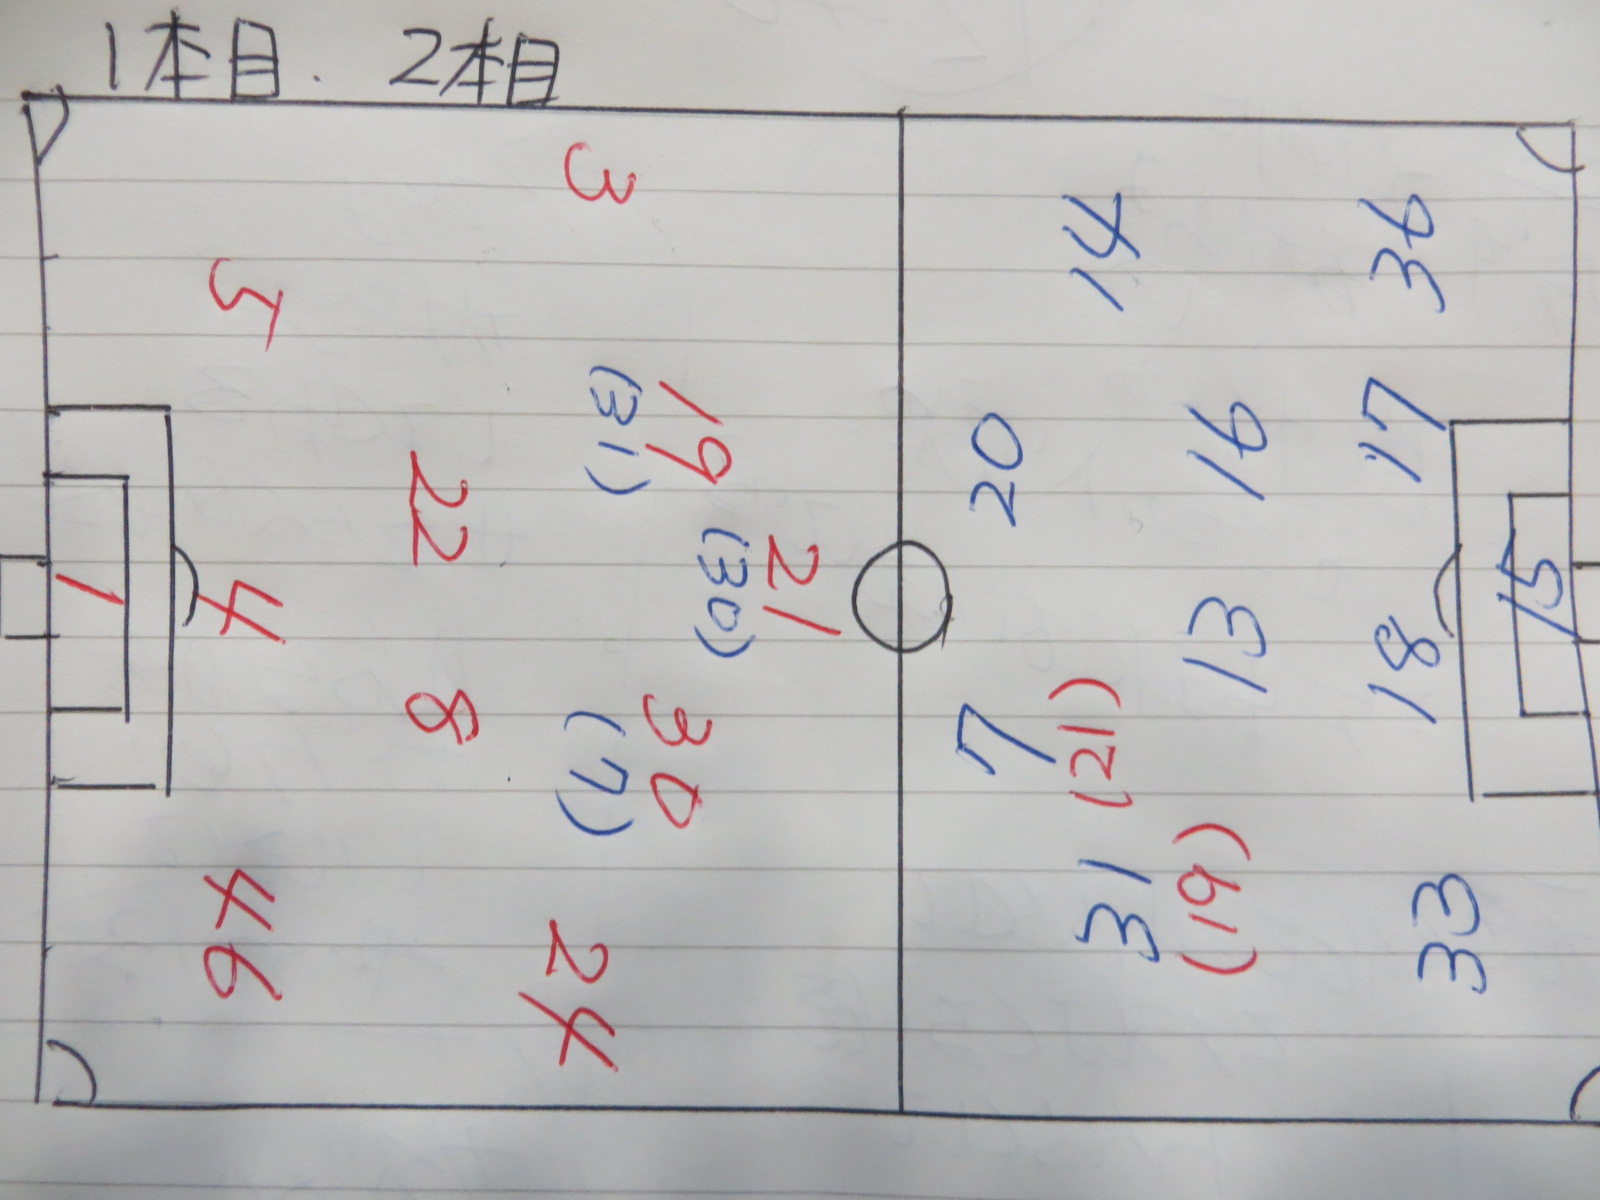 1本目. 2本目
3
5
19
(31)
22
21
(30)
1
4
8
30
(7)
46
24
14
36
20
16
17
15
13
18
7
(21)
31
(19)
33